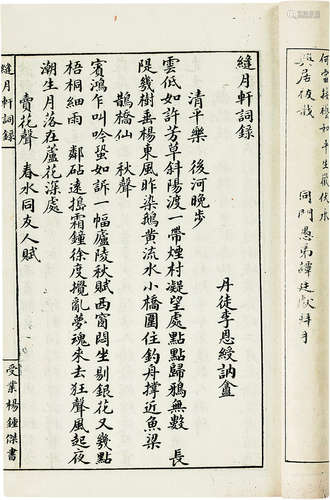 同門愚弟譚廷獻拜手
縫月軒詞錄
丹徒李恩綬訥盦
清平樂 後河晚步
雲低如許芳草斜陽渡一帶煙村凝望處點點歸鴉無數 長
隄幾樹垂楊東風昨染鵝黃流水小橋圍住釣舟撐近魚梁
鵲橋仙 秋聲
賓鴻乍叫吟蛩如訴一幅廬陵秋賦西窗悶坐剔銀花又幾點
梧桐細雨 鄰砧遠搗霜鐘徐度攪亂夢魂來去狂聲風起夜
潮生月落在蘆花深處
賣花聲 春水同友人賦
縫月軒詞錄
受業楊鍾傑書